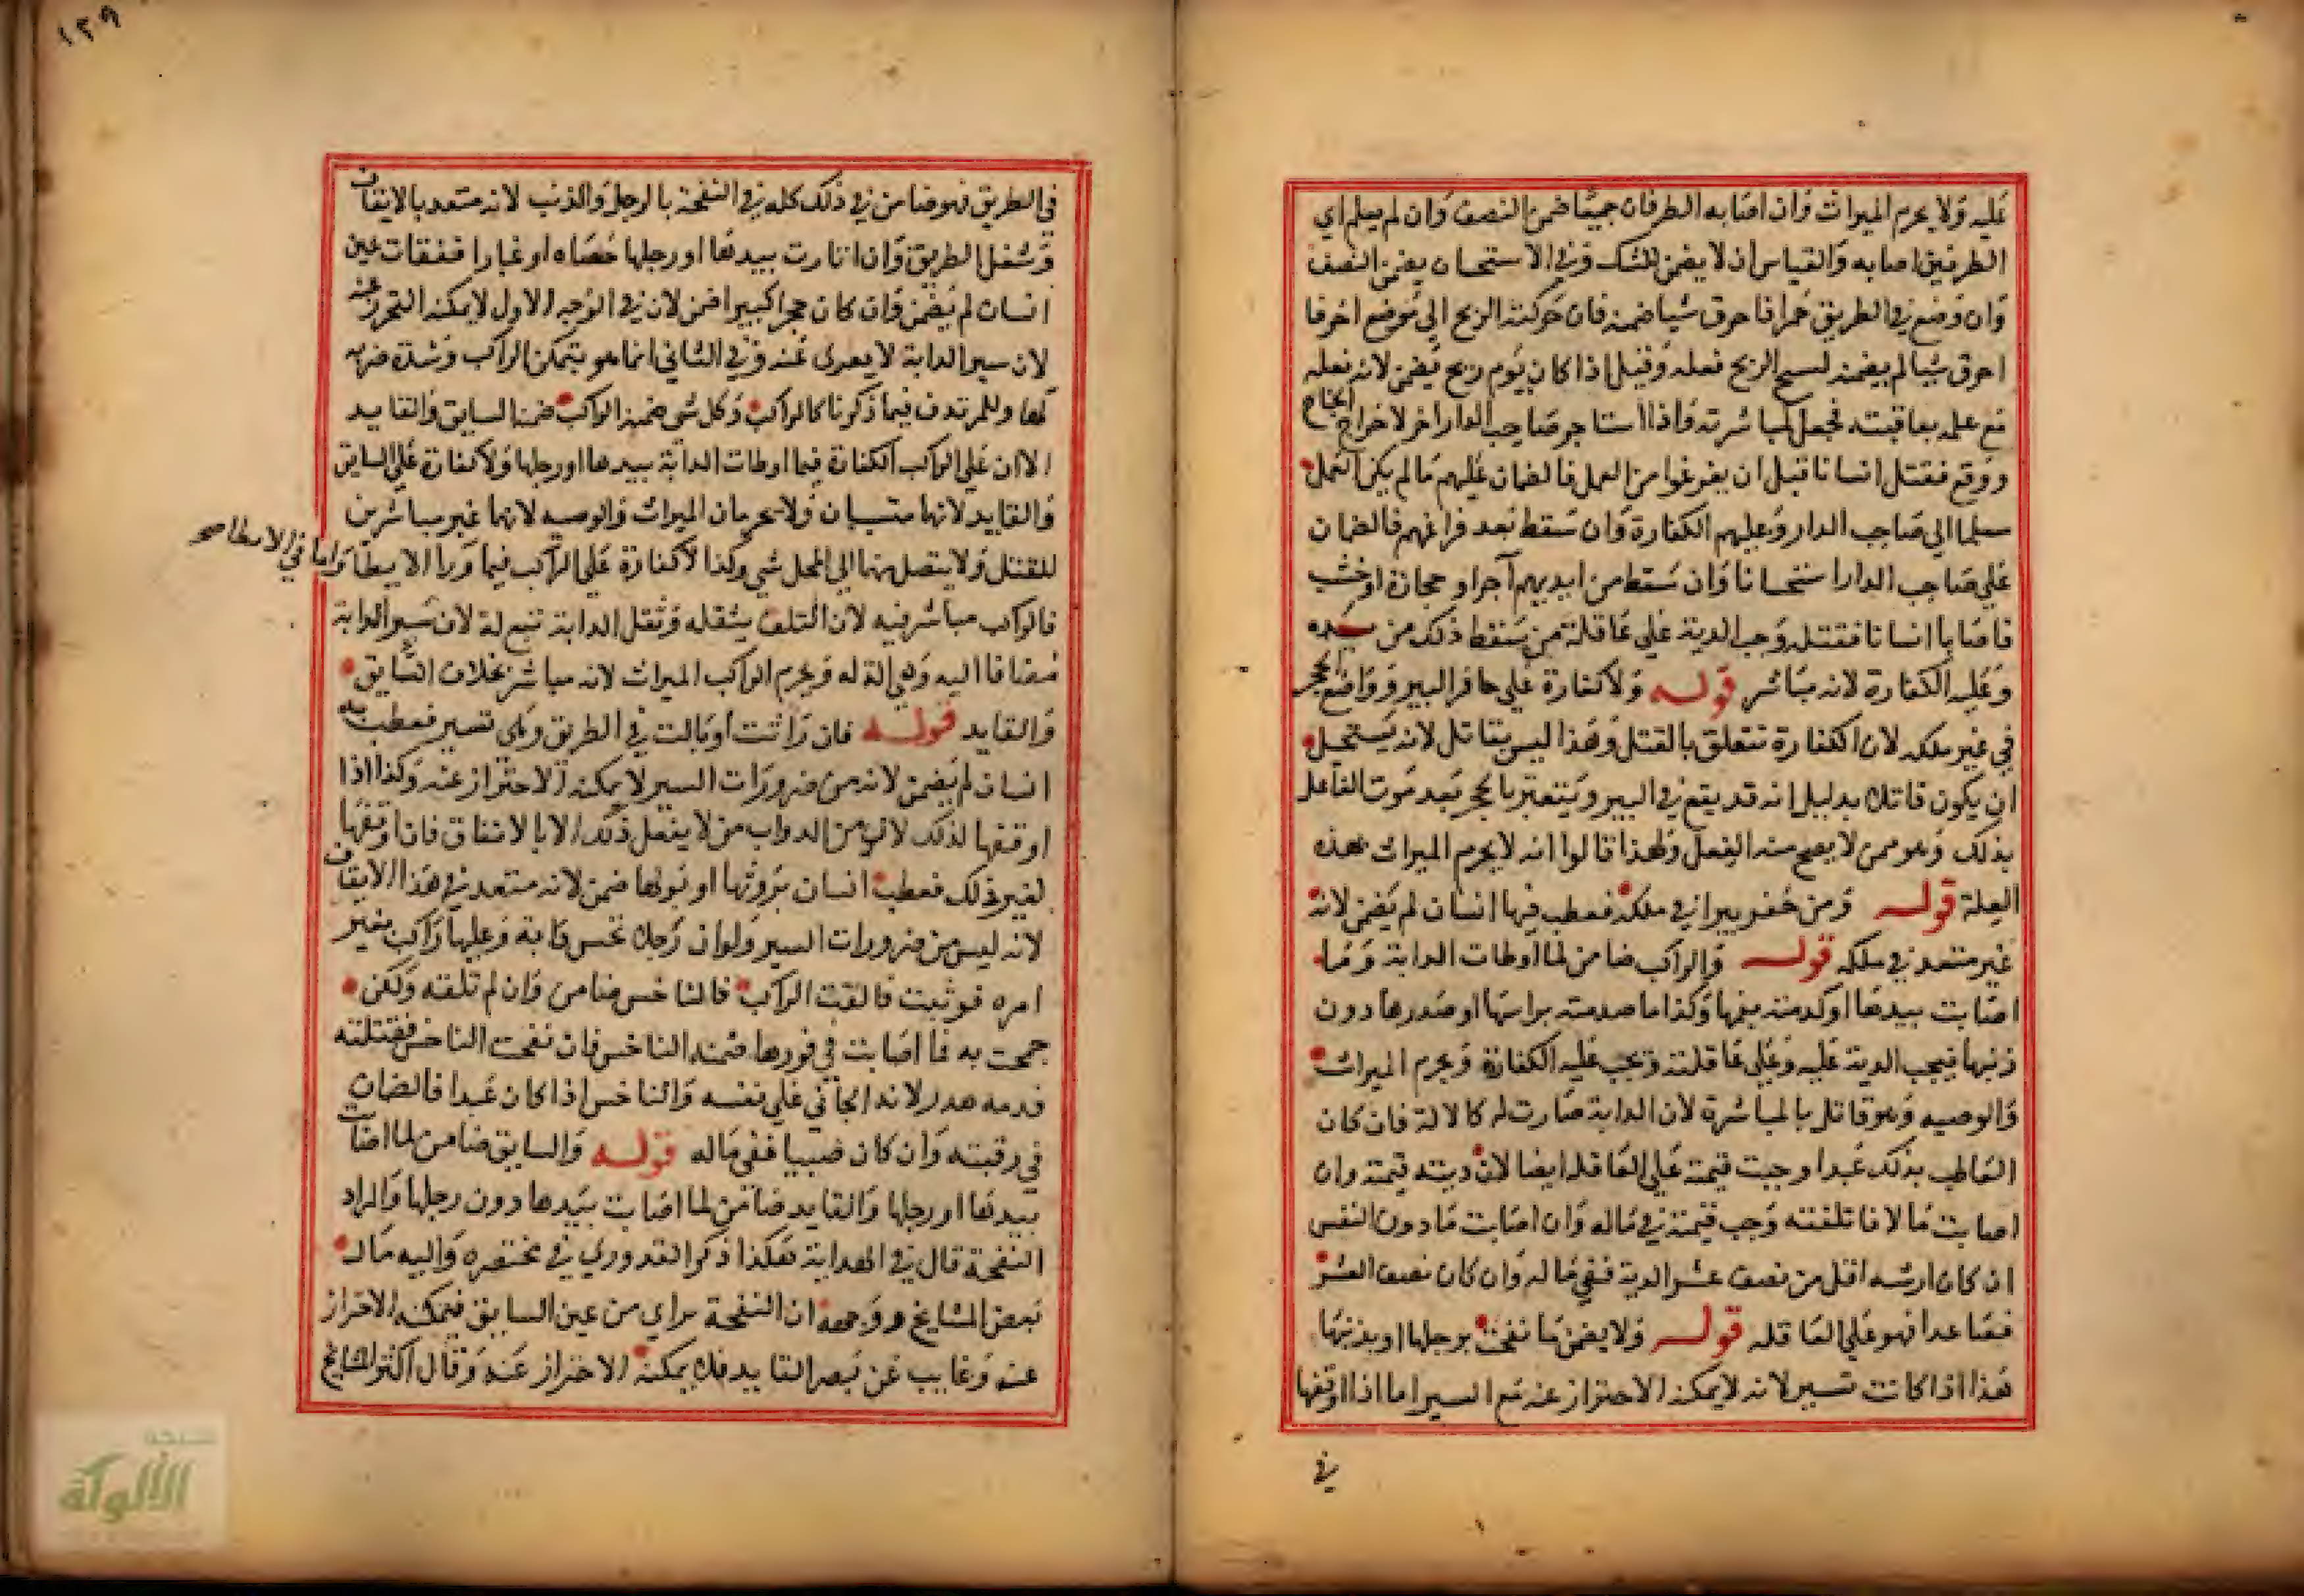 عليه ولا يحرم الميراث وان اصابه الطرفان جميعا ضمن النصف وان لم يعلم اي
الطرفين اصابه والقياس ان لا يضمن للشك وفي الاستحسان يضمن النصف
وان وضع في الطريق جمرا فاحرق شيا ضمنه فان حركته الريح الي موضع اخر فا
احرق شيا لم يضمنه لنسخ الريح فعله وقيل اذا كان يوم ريح يضمن لانه فعله
مع علمه بعاقبته فجعل كمباشرته واذا استاجر صاحب الدار اخر لاخراج الجناح
ووقع فقتل انسانا قبل ان يفرغوا من العمل فالضمان عليهم ما لم يكن العمل
مسلما الي صاحب الدار وعليهم الكفارة وان سقط بعد فراغهم فالضمان
علي صاحب الدار استحسانا وان سقط من ايديهم آجر او حجارة او خشب
فاصابا انسانا فقتله وجب الدية علي عاقلة من سقط ذلك من يده
وعليه الكفارة لانه مباشر قوله ولا كفارة علي حافر البير وواضع الحجر
في غير ملكه لان الكفارة تتعلق بالقتل وهذا ليس بقاتل لانه يستحيل
ان يكون قاتلا بدليل انه قد يقع في البير ويتعثر بالحجر بعد موت الفاعل
بذلك وهو ممن لا يصح منه الفعل ولهذا قالوا انه لا يحرم الميراث بهذه
العلة قوله ومن حفر بيرا في ملكه فعطب فيها انسان لم يضمن لانه
غير متعد في ملكه قوله والراكب ضامن لما اوطات الدابة وما
اصابت بيدها او كدمته بفمها وكذا ما صدمته براسها او صدرها دون
ذنبها فيجب الدية عليه وعلي عاقلته وتجب عليه الكفارة ويحرم الميراث
والوصيه وهو قاتل بالمباشرة لان الدابة صارت له كالالة فان كان
العاطب بذلك عبدا وجبت قيمته علي العاقله ايضا لان ديته قيمته وان
اصابت مالا فاتلفته وجب قيمته في ماله وان اصابت ما دون النفس
ان كان ارشه اقل من نصف عشر الدية ففي ماله وان كان نصف العشر
فصاعدا فهو علي العاقله قوله ولا يضمن ما نفحت برجلها او بذنبها
هذا اذا كانت تسير لانه لا يمكنه الاحتراز عنه مع السير اما اذا اوقفها
في
١٣٩
في الطريق فهو ضامن في ذلك كله في النفحة بالرجل والذنب لانه متعد بالايقاف
وشغل الطريق وان اثارت بيدها او رجلها حصاه او غبارا ففقات عين
انسان لم يضمن وان كان حجرا كبيرا ضمن لان في الوجه الاول لا يمكنه التحرز عنه
لان سير الدابة لا يعرى عنه وفي الثاني انما هو بتمكن الراكب وشدة ضربه
لها وللمرتدف فيما ذكرنا كالراكب وكل شي ضمنه الراكب ضمنه السايق والقايد
الا ان علي الراكب الكفارة فيما اوطات الدابة بيدها او رجلها ولا كفارة علي السايق
والقايد لانهما متسببان ولا يحرمان الميراث والوصيه لانهما غير مباشرين
للقتل ولا يتصل منهما الي المحل شي وكذا لا كفارة علي الراكب فيما ورا الايطا واما في الايطا صح
فالراكب مباشر فيه لان التلف بثقله وثقل الدابة تبع له لان سير الدابة
مضافا اليه وهي الة له ويحرم الراكب الميراث لانه مباشر بخلاف السايق
والقايد قوله فان راثت او بالت في الطريق وهي تسير فعطب به
انسان لم يضمن لانه من ضرورات السير لا يمكنه الاحتراز عنه وكذا اذا
اوقفها لذلك لان من الدواب من لا يفعل ذلك الا بالايقاف فان اوقفها
لغير ذلك فعطب انسان بروثها او بولها ضمن لانه متعد في هذا الايقاف
لانه ليس من ضرورات السير ولو ان رجلا نخس دابة وعليها راكب بغير
امره فوثبت فالقت الراكب فالناخس ضامن وان لم تلقه ولكن
جمحت به فما اصابت في فورها ضمنه الناخس فان نفحت الناخس فقتلته
فدمه هدر لانه الجاني علي نفسه والناخس اذا كان عبدا فالضمان
في رقبته وان كان صبيا ففي ماله قوله والسايق ضامن لما اصابت
بيدها او رجلها والقايد ضامن لما اصابت بيدها دون رجلها والمراد
النفحة قال في الهداية هكذا ذكر القدوري في مختصره واليه مال
بعض المشايخ ووجهه ان النفحة براي من عين السايق فيمكنه الاحتراز
عنه وغايب عن بصر القايد فلا يمكنه الاحتراز عنه وقال اكثر المشايخ
شبكة
الألوكة